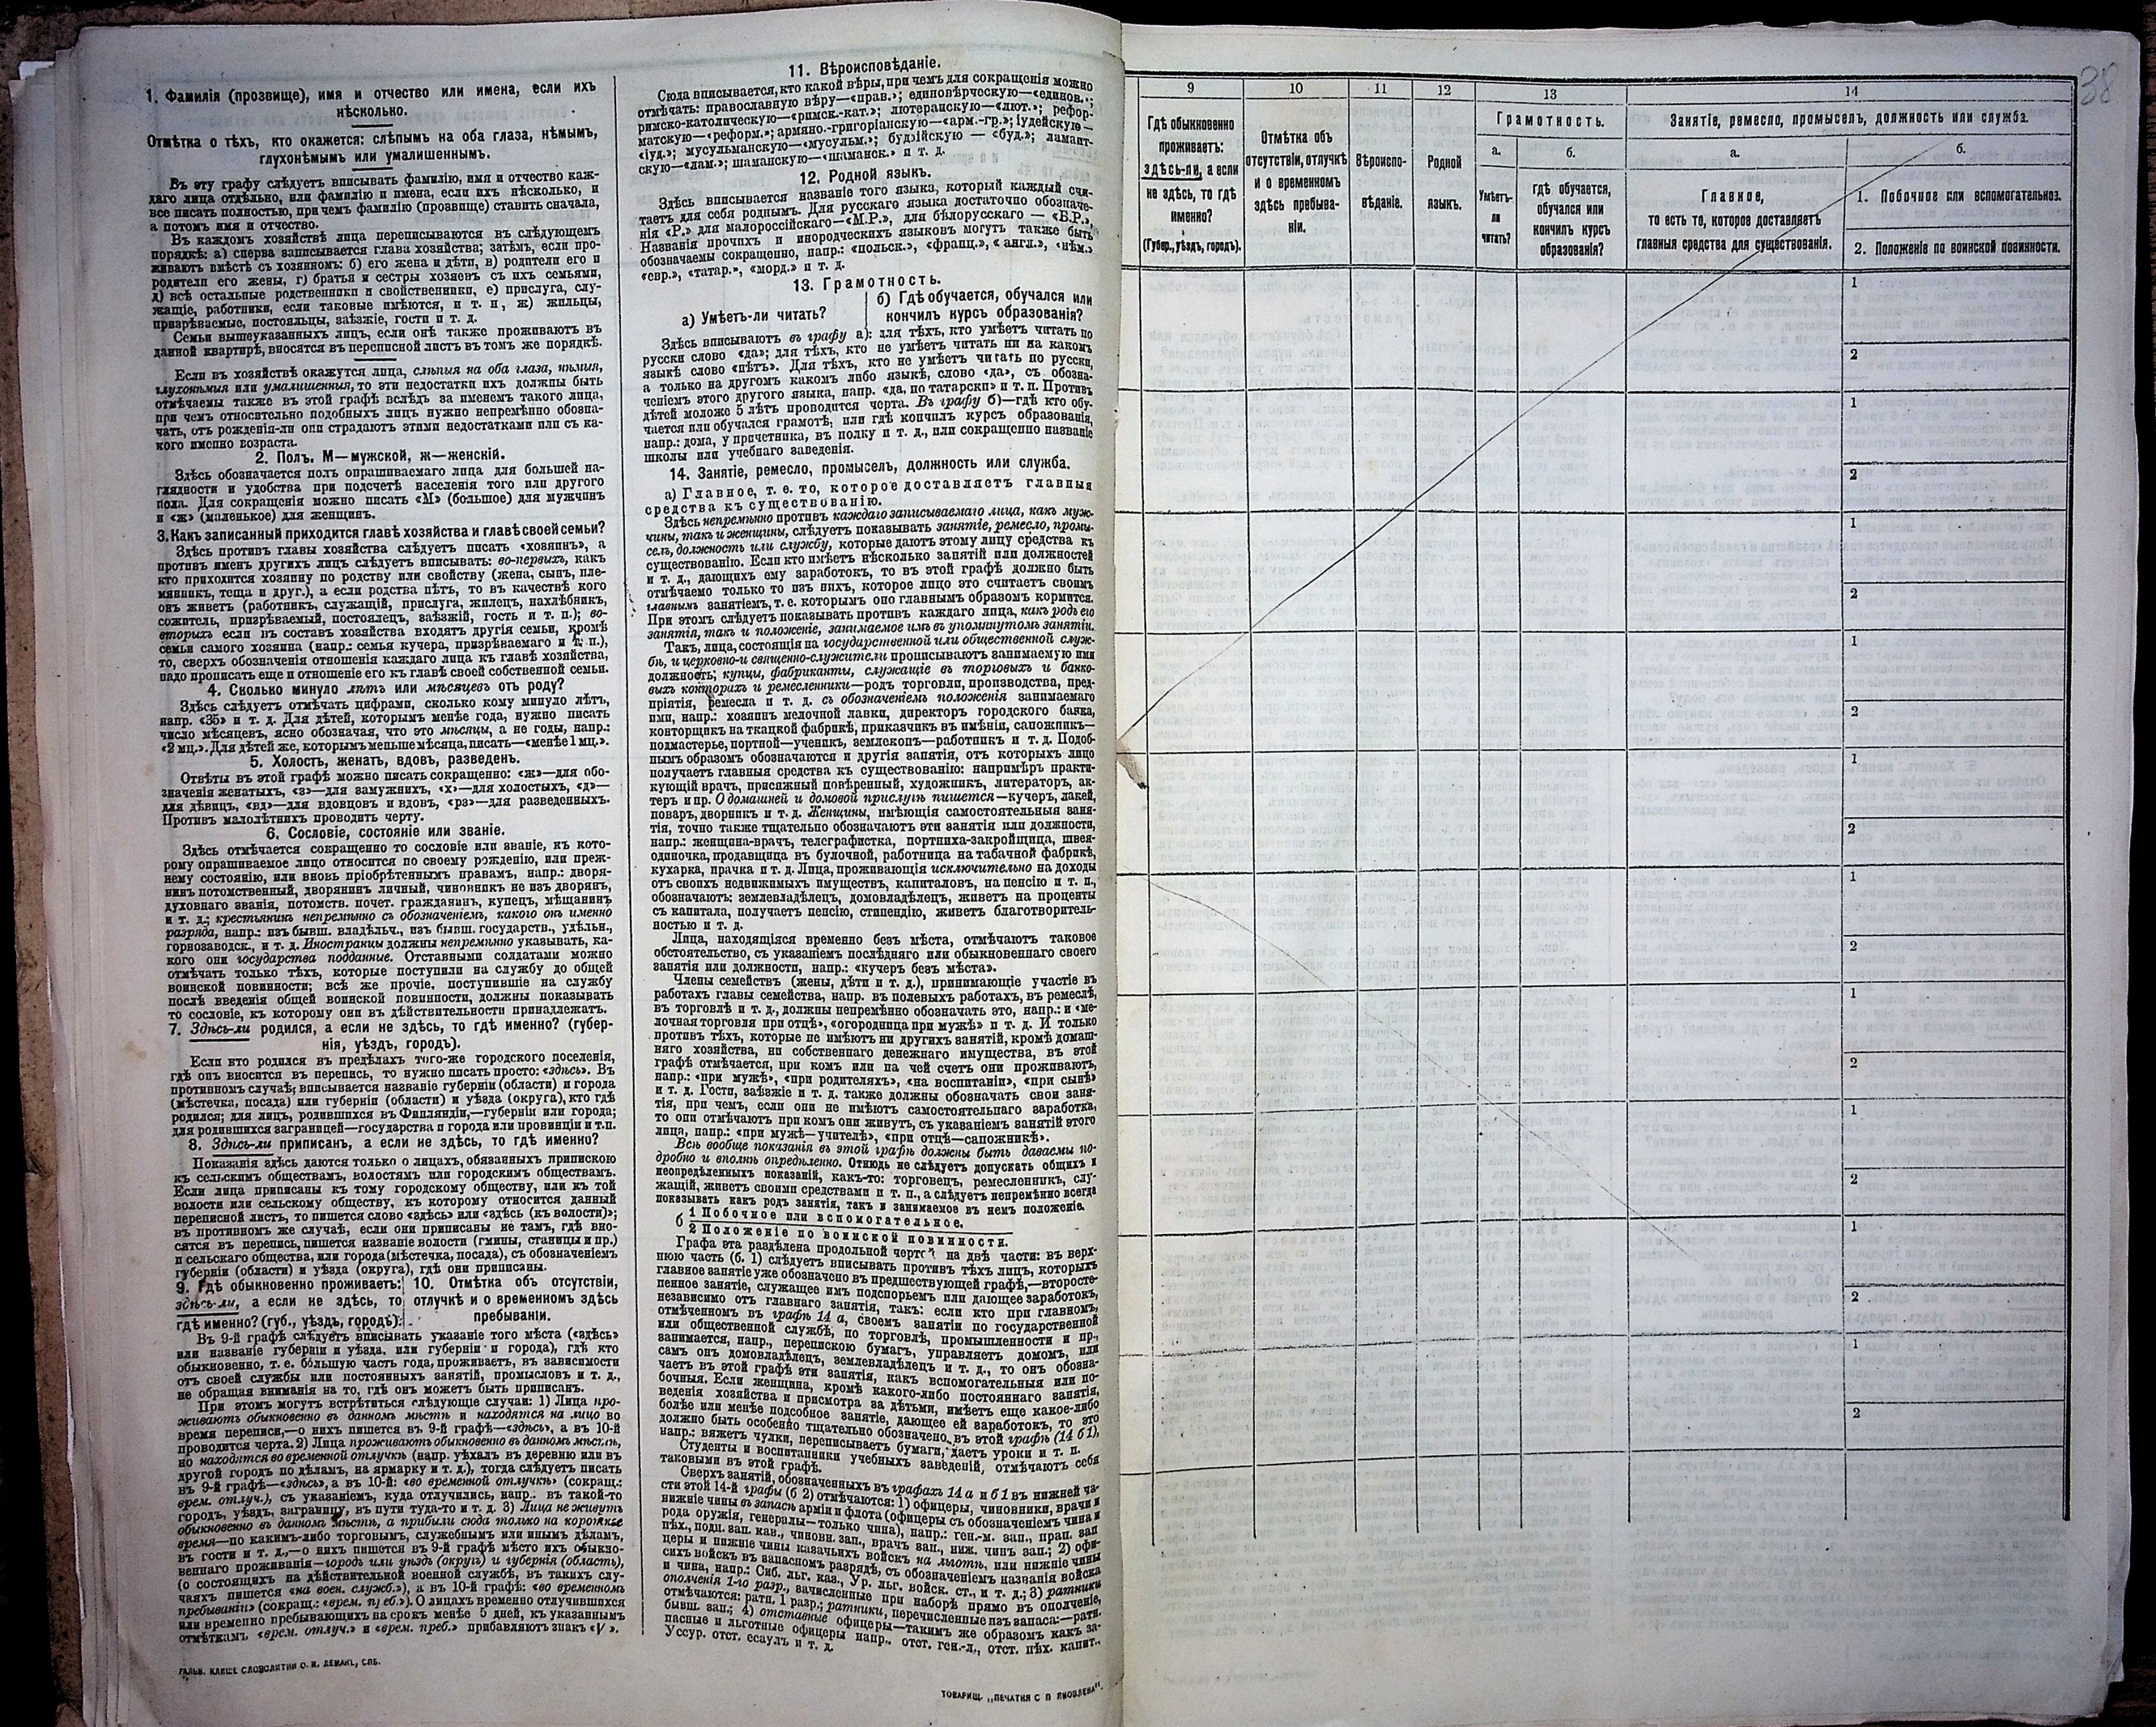 1. Фамилія (прозвище), имя и отчество или имена, если ихъ
нѣсколько.
Отмѣтка о тѣхъ, кто окажется: слѣпымъ на оба глаза, нѣмымъ,
глухонѣмымъ или умалишеннымъ.
Въ эту графу слѣдуетъ вписывать фамилію, имя и отчество каж-
даго лица отдѣльно, или фамилію и имена, если ихъ нѣсколько, и
все писать полностью, при чемъ фамилію (прозвище) ставить сначала,
а потомъ имя и отчество.
Въ каждомъ хозяйствѣ лица переписываются въ слѣдующемъ
порядкѣ: а) сперва записывается глава хозяйства; затѣмъ, если про-
живаютъ вмѣстѣ съ хозяиномъ: б) его жена и дѣти, в) родители его и
родители его жены, г) братья и сестры хозяевъ съ ихъ семьями,
д) всѣ остальные родственники и свойственники, е) прислуга, слу-
жащіе, работники, если таковые имѣются, и т. п, ж) жильцы,
призрѣваемые, постояльцы, заѣзжіе, гости и т. д.
Семьи вышеуказанныхъ лицъ, если онѣ также проживаютъ въ
данной квартирѣ, вносятся въ переписной листъ въ томъ же порядкѣ.
Если въ хозяйствѣ окажутся лица, слѣпыя на оба глаза, нѣмыя,
глухонѣмыя или умалишенныя, то эти недостатки ихъ должны быть
отмѣчаемы также въ этой графѣ вслѣдъ за именемъ такого лица,
при чемъ относительно подобныхъ лицъ нужно непремѣнно обозна-
чать, отъ рожденія-ли они страдаютъ этими недостатками или съ ка-
кого именно возраста.
2. Полъ. М—мужской, ж—женскій.
Здѣсь обозначается полъ опрашиваемаго лица для большей на-
глядности и удобства при подсчетѣ населенія того или другого
пола. Для сокращенія можно писать «М» (большое) для мужчинъ
и «ж» (маленькое) для женщинъ.
3. Какъ записанный приходится главѣ хозяйства и главѣ своей семьи?
Здѣсь противъ главы хозяйства слѣдуетъ писать «хозяинъ», а
противъ именъ другихъ лицъ слѣдуетъ вписывать: во-первыхъ, какъ
кто приходится хозяину по родству или свойству (жена, сынъ, пле-
мянникъ, теща и друг.), а если родства нѣтъ, то въ качествѣ кого
онъ живетъ (работникъ, служащій, прислуга, жилецъ, нахлѣбникъ,
сожитель, призрѣваемый, постоялецъ, заѣзжій, гость и т. п.); во-
вторыхъ если въ составъ хозяйства входятъ другія семьи, кромѣ
семьи самого хозяина (напр.: семья кучера, призрѣваемаго и т. п.),
то, сверхъ обозначенія отношенія каждаго лица къ главѣ хозяйства,
надо прописать еще и отношеніе его къ главѣ своей собственной семьи.
4. Сколько минуло лѣтъ или мѣсяцевъ отъ роду?
Здѣсь слѣдуетъ отмѣчать цифрами, сколько кому минуло лѣтъ,
напр. «35» и т. д. Для дѣтей, которымъ менѣе года, нужно писать
число мѣсяцевъ, ясно обозначая, что это мѣсяцы, а не годы, напр.:
«2 мц.». Для дѣтей же, которымъ меньше мѣсяца, писать—«менѣе 1 мц.».
5. Холостъ, женатъ, вдовъ, разведенъ.
Отвѣты въ этой графѣ можно писать сокращенно: «ж»—для обо-
значенія женатыхъ, «з»—для замужнихъ, «х»—для холостыхъ, «д»—
для дѣвицъ, «вд»—для вдовцовъ и вдовъ, «рз»—для разведенныхъ.
Противъ малолѣтнихъ проводить черту.
6. Сословіе, состояніе или званіе.
Здѣсь отмѣчается сокращенно то сословіе или званіе, къ кото-
рому опрашиваемое лицо относится по своему рожденію, или преж-
нему состоянію, или вновь пріобрѣтеннымъ правамъ, напр.: дворя-
нинъ потомственный, дворянинъ личный, чиновникъ не изъ дворянъ,
духовнаго званія, потомств. почет. гражданинъ, купецъ, мѣщанинъ
и т. д.; крестьянинъ непремѣнно съ обозначеніемъ, какого онъ именно
разряда, напр.: изъ бывш. владѣльч., изъ бывш. государств., удѣльн.,
горнозаводск., и т. д. Иностранцы должны непремѣнно указывать, ка-
кого они государства подданные. Отставными солдатами можно
отмѣчать только тѣхъ, которые поступили на службу до общей
воинской повинности; всѣ же прочіе, поступившіе на службу
послѣ введенія общей воинской повинности, должны показывать
то сословіе, къ которому они въ дѣйствительности принадлежатъ.
7. Здѣсь-ли родился, а если не здѣсь, то гдѣ именно? (губер-
нія, уѣздъ, городъ).
Если кто родился въ предѣлахъ того-же городского поселенія,
гдѣ онъ вносится въ перепись, то нужно писать просто: «здѣсь». Въ
противномъ случаѣ; вписывается названіе губерніи (области) и города
(мѣстечка, посада) или губерніи (области) и уѣзда (округа), кто гдѣ
родился; для лицъ, родившихся въ Финляндіи,—губерніи или города;
для родившихся заграницей—государства и города или провинціи и т.п.
8. Здѣсь-ли приписанъ, а если не здѣсь, то гдѣ именно?
Показанія здѣсь даются только о лицахъ, обязанныхъ припискою
къ сельскимъ обществамъ, волостямъ или городскимъ обществамъ.
Если лица приписаны къ тому городскому обществу, или къ той
волости или сельскому обществу, къ которому относится данный
переписной листъ, то пишется слово «здѣсь» или «здѣсь (къ волости)»;
въ противномъ же случаѣ, если они приписаны не тамъ, гдѣ вно-
сятся въ перепись, пишется названіе волости (гмины, станицы и пр.)
и сельскаго общества, или города (мѣстечка, посада), съ обозначеніемъ
губерніи (области) и уѣзда (округа), гдѣ они приписаны.
9. Гдѣ обыкновенно проживаетъ:
здѣсь-ли, а если не здѣсь, то
гдѣ именно? (губ., уѣздъ, городъ).
10. Отмѣтка объ отсутствіи,
отлучкѣ и о временномъ здѣсь
пребываніи.
Въ 9-й графѣ слѣдуетъ вписывать указаніе того мѣста («здѣсь»
или названіе губерніи и уѣзда, или губерніи и города), гдѣ кто
обыкновенно, т. е. бо́льшую часть года, проживаетъ, въ зависимости
отъ своей службы или постоянныхъ занятій, промысловъ и т. д.,
не обращая вниманія на то, гдѣ онъ можетъ быть приписанъ.
При этомъ могутъ встрѣтиться слѣдующіе случаи: 1) Лица про-
живаютъ обыкновенно въ данномъ мѣстѣ и находятся на лицо во
время переписи,—о нихъ пишется въ 9-й графѣ—«здѣсь», а въ 10-й
проводится черта. 2) Лица проживаютъ обыкновенно въ данномъ мѣстѣ,
но находятся во временной отлучкѣ (напр. уѣхалъ въ деревню или въ
другой городъ по дѣламъ, на ярмарку и т. д.), тогда слѣдуетъ писать
въ 9-й графѣ—«здѣсь», а въ 10-й: «во временной отлучкѣ» (сокращ.:
врем. отлуч.), съ указаніемъ, куда отлучились, напр.. въ такой-то
городъ, уѣздъ, заграницу, въ пути туда-то и т. д. 3) Лица не живутъ
обыкновенно въ данномъ мѣстѣ, а прибыли сюда только на короткое
время—по какимъ-либо торговымъ, служебнымъ или инымъ дѣламъ,
въ гости и т. д.,—о нихъ пишется въ 9-й графѣ мѣсто ихъ обыкно-
веннаго проживанія—городъ или уѣздъ (округъ) и губернія (область),
(о состоящихъ на дѣйствительной военной службѣ, въ такихъ слу-
чаяхъ пишется «на воен. служб.»), а въ 10-й графѣ: «во временномъ
пребываніи» (сокращ.: «врем. преб.»). О лицахъ временно отлучившихся
или временно пребывающихъ на срокъ менѣе 5 дней, къ указаннымъ
отмѣткамъ «врем. отлуч.» и «врем. преб.» прибавляютъ знакъ «V».
ГАЛЬВ. КЛИШЕ СЛОВОЛИТНИ О. И. ЛЕМАНЪ, СПБ.
11. Вѣроисповѣданіе.
Сюда вписывается, кто какой вѣры, при чемъ для сокращенія можно
отмѣчать: православную вѣру—«прав.»; единовѣрческую—«единов.»;
римско-католическую—«римск.-кат.»; лютеранскую—«лют.»; рефор-
матскую—«реформ.»; армяно-григоріанскую—«арм.-гр.»; іудейскую—
«іуд.»; мусульманскую—«мусульм.»; буддійскую — «буд.»; ламаит-
скую—«лам.»; шаманскую—«шаманск.» и т. д.
12. Родной языкъ.
Здѣсь вписывается названіе того языка, который каждый счи-
таетъ для себя роднымъ. Для русскаго языка достаточно обозначе-
нія «Р.» для малороссійскаго—«М.Р.», для бѣлорусскаго — «Б.Р.»,
Названія прочихъ и инородческихъ языковъ могутъ также быть
обозначаемы сокращенно, напр.: «польск.», «франц.», «англ.», «нѣм.»
«евр.», «татар.», «морд.» и т. д.
13. Грамотность.
а) Умѣетъ-ли читать?
б) Гдѣ обучается, обучался или
кончилъ курсъ образованія?
Здѣсь вписываютъ въ графу а): для тѣхъ, кто умѣетъ читать по
русски слово «да»; для тѣхъ, кто не умѣетъ читать ни на какомъ
языкѣ слово «нѣтъ». Для тѣхъ, кто не умѣетъ читать по русски,
а только на другомъ какомъ либо языкѣ, слово «да», съ обозна-
ченіемъ этого другого языка, напр. «да, по татарски» и т. п. Противъ
дѣтей моложе 5 лѣтъ проводится черта. Въ графу б)—гдѣ кто обу-
чается или обучался грамотѣ, или гдѣ кончилъ курсъ образованія,
напр.: дома, у причетника, въ полку и т. д., или сокращенно названіе
школы или учебнаго заведенія.
14. Занятіе, ремесло, промыселъ, должность или служба.
а) Главное, т. е. то, которое доставляетъ главныя
средства къ существованію.
Здѣсь непремѣнно противъ каждаго записываемаго лица, какъ муж-
чины, такъ и женщины, слѣдуетъ показывать занятіе, ремесло, промы-
селъ, должность или службу, которые даютъ этому лицу средства къ
существованію. Если кто имѣетъ нѣсколько занятій или должностей
и т. д., дающихъ ему заработокъ, то въ этой графѣ должно быть
отмѣчаемо только то изъ нихъ, которое лицо это считаетъ своимъ
главнымъ занятіемъ, т. е. которымъ оно главнымъ образомъ кормится.
При этомъ слѣдуетъ показывать противъ каждаго лица, какъ родъ его
занятія, такъ и положеніе, занимаемое имъ въ упомянутомъ занятіи.
Такъ, лица, состоящія на государственной или общественной служ-
бѣ, и церковно-и священно-служители прописываютъ занимаемую ими
должность; купцы, фабриканты, служащіе въ торговыхъ и банко-
выхъ конторахъ и ремесленники—родъ торговли, производства, пред-
пріятія, ремесла и т. д. съ обозначеніемъ положенія занимаемаго
ими, напр.: хозяинъ мелочной лавки, директоръ городского банка,
конторщикъ на ткацкой фабрикѣ, приказчикъ въ имѣніи, сапожникъ—
подмастерье, портной—ученикъ, землекопъ—работникъ и т. д. Подоб-
нымъ образомъ обозначаются и другія занятія, отъ которыхъ лицо
получаетъ главныя средства къ существованію: напримѣръ практи-
кующій врачъ, присяжный повѣренный, художникъ, литераторъ, ак-
теръ и пр. О домашней и домовой прислугѣ пишется—кучеръ, лакей,
поваръ, дворникъ и т. д. Женщины, имѣющія самостоятельныя заня-
тія, точно также тщательно обозначаютъ эти занятія или должности,
напр.: женщина-врачъ, телеграфистка, портниха-закройщица, швея-
одиночка, продавщица въ булочной, работница на табачной фабрикѣ,
кухарка, прачка и т. д. Лица, проживающія исключительно на доходы
отъ своихъ недвижимыхъ имуществъ, капиталовъ, на пенсію и т. п.,
обозначаютъ: землевладѣлецъ, домовладѣлецъ, живетъ на проценты
съ капитала, получаетъ пенсію, стипендію, живетъ благотворитель-
ностью и т. д.
Лица, находящіяся временно безъ мѣста, отмѣчаютъ таковое
обстоятельство, съ указаніемъ послѣдняго или обыкновеннаго своего
занятія или должности, напр.: «кучеръ безъ мѣста».
Члены семействъ (жены, дѣти и т. д.), принимающіе участіе въ
работахъ главы семейства, напр. въ полевыхъ работахъ, въ ремеслѣ,
въ торговлѣ и т. д., должны непремѣнно обозначать это, напр.: и «ме-
лочная торговля при отцѣ», «огородница при мужѣ» и т. д. И только
противъ тѣхъ, которые не имѣютъ ни другихъ занятій, кромѣ домаш-
няго хозяйства, ни собственнаго денежнаго имущества, въ этой
графѣ отмѣчается, при комъ или на чей счетъ они проживаютъ,
напр.: «при мужѣ», «при родителяхъ», «на воспитаніи», «при сынѣ»
и т. д. Гости, заѣзжіе и т. д. также должны обозначать свои заня-
тія, при чемъ, если они не имѣютъ самостоятельнаго заработка,
то они отмѣчаютъ при комъ они живутъ, съ указаніемъ занятій этого
лица, напр.: «при мужѣ—учителѣ», «при отцѣ—сапожникѣ».
Всѣ вообще показанія въ этой графѣ должны быть даваемы по-
дробно и вполнѣ опредѣленно. Отнюдь не слѣдуетъ допускать общихъ и
неопредѣленныхъ показаній, какъ-то: торговецъ, ремесленникъ, слу-
жащій, живетъ своими средствами и т. п., а слѣдуетъ непремѣнно всегда
показывать какъ родъ занятія, такъ и занимаемое въ немъ положеніе.
б 1 Побочное или вспомогательное.
2 Положеніе по воинской повинности.
Графа эта раздѣлена продольной чертой на двѣ части: въ верх-
нюю часть (б. 1) слѣдуетъ вписывать противъ тѣхъ лицъ, которыхъ
главное занятіе уже обозначено въ предшествующей графѣ,—второсте-
пенное занятіе, служащее имъ подспорьемъ или дающее заработокъ,
независимо отъ главнаго занятія, такъ: если кто при главномъ,
отмѣченномъ въ графѣ 14 а, своемъ занятіи по государственной
или общественной службѣ, по торговлѣ, промышленности и пр.,
занимается, напр., перепискою бумагъ, управляетъ домомъ, или
самъ онъ домовладѣлецъ, землевладѣлецъ и т. д., то онъ обозна-
чаетъ въ этой графѣ эти занятія, какъ вспомогательныя или по-
бочныя. Если женщина, кромѣ какого-либо постояннаго занятія,
веденія хозяйства и присмотра за дѣтьми, имѣетъ еще какое-либо
болѣе или менѣе подсобное занятіе, дающее ей заработокъ, то это
должно быть особенно тщательно обозначено въ этой графѣ (14 б 1),
напр.: вяжетъ чулки, переписываетъ бумаги, даетъ уроки и т. п.
Студенты и воспитанники учебныхъ заведеній, отмѣчаютъ себя
таковыми въ этой графѣ.
Сверхъ занятій, обозначенныхъ въ графахъ 14 а и б 1 въ нижней ча-
сти этой 14-й графы (б 2) отмѣчаются: 1) офицеры, чиновники, врачи и
нижніе чины въ запасѣ арміи и флота (офицеры съ обозначеніемъ чина и
рода оружія, генералы—только чина), напр.: ген.-м. зап., прап. зап
пѣх., подп. зап. кав., чиновн. зап., врачъ зап., ниж. чинъ зап.; 2) офи-
церы и нижніе чины казачьихъ войскъ на льготѣ, или нижніе чины
сихъ войскъ въ запасномъ разрядѣ, съ обозначеніемъ названія войска
и чина, напр.: Сиб. льг. каз., Ур. льг. войск. ст., и т. д.; 3) ратники
ополченія 1-го разр., зачисленные при наборѣ прямо въ ополченіе,
отмѣчаются: ратн. 1 разр.; ратники, перечисленные изъ запаса:—ратн.
бывш. зап.; 4) отставные офицеры—такимъ же образомъ какъ за-
пасные и льготные офицеры напр., отст. ген.-л., отст. пѣх. капит.,
Уссур. отст. есаулъ и т. д.
ТОВАРИЩ. „ПЕЧАТНЯ С П ЯКОВЛЕВА".
38
9 10 11 12 13 14
Гдѣ обыкновенно
проживаетъ:
здѣсь-ли, а если
не здѣсь, то гдѣ
именно?
(Губер., уѣздъ, городъ).
Отмѣтка объ
отсутствіи, отлучкѣ
и о временномъ
здѣсь пребыва-
ніи.
Вѣроиспо-
вѣданіе.
Родной
языкъ.
Грамотность.
а.
Умѣетъ-
ли
читать?
б.
гдѣ обучается,
обучался или
кончилъ курсъ
образованія?
Занятіе, ремесло, промыселъ, должность или служба.
а.
Главное,
то есть то, которое доставляетъ
главныя средства для существованія.
б.
1. Побочное или вспомогательное.
2. Положеніе по воинской повинности.
1
2
1
2
1
2
1
2
1
2
1
2
1
2
1
2
1
2
1
2